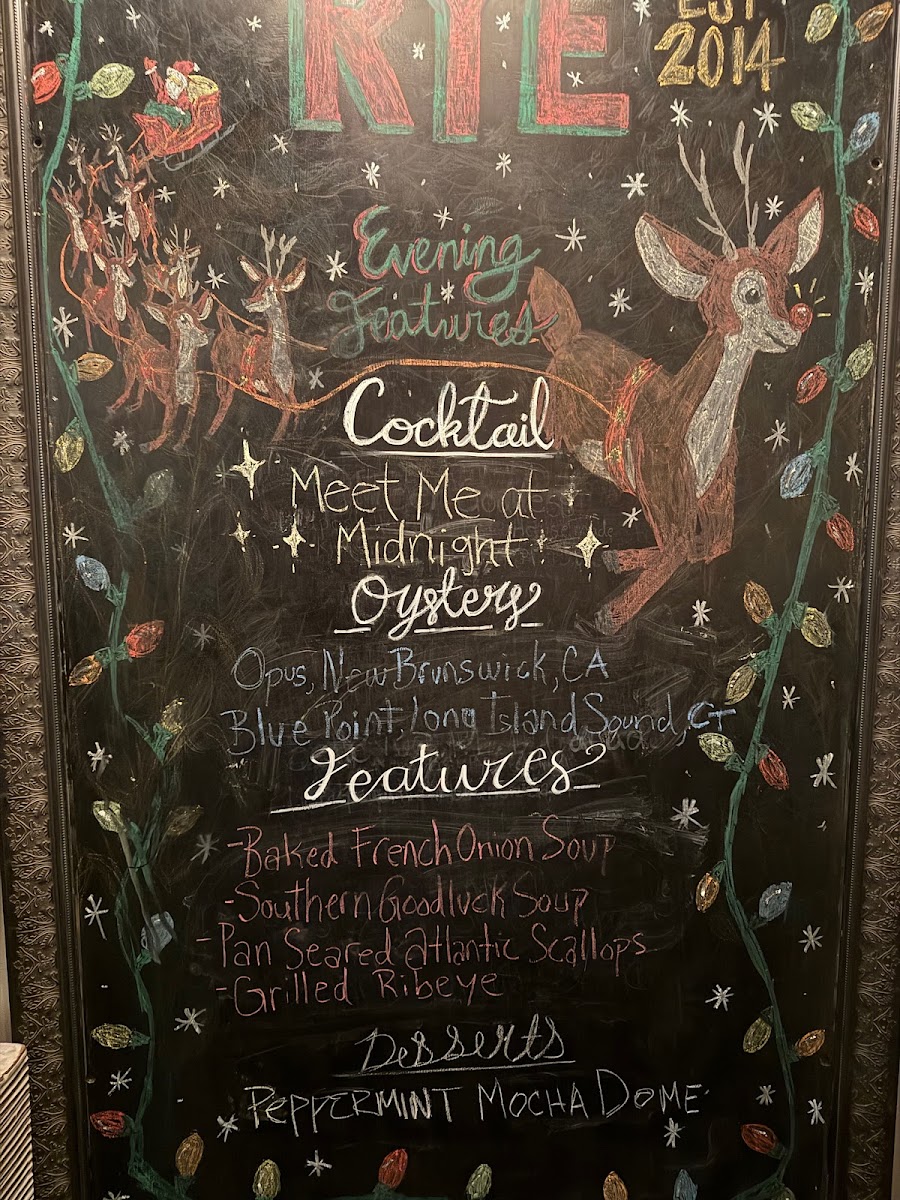 RYE
EST
2014
Evening
Features
Cocktail
Meet Me at
Midnight
Oysters
Opus, New Brunswick, CA
Blue Point, Long Island Sound, CT
Features
-Baked French Onion Soup
-Southern Goodluck Soup
-Pan Seared Atlantic Scallops
-Grilled Ribeye
Desserts
PEPPERMINT MOCHA DOME